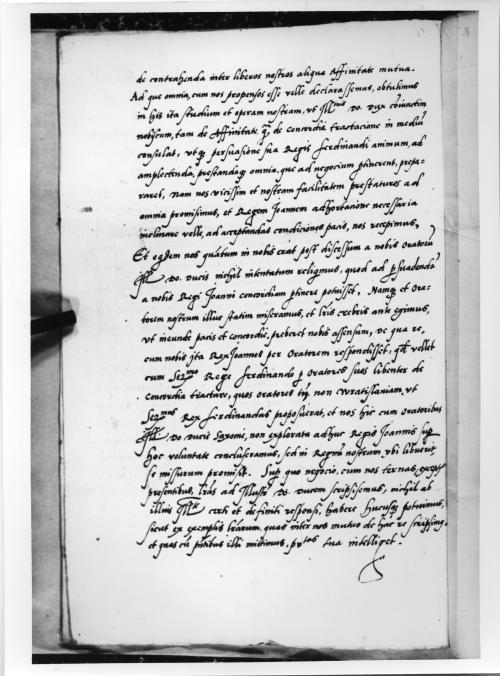 de contrahenda inter liberos nostros aliqua Affinitate mutua.
Ad que omnia, cum nos propensos esse velle declarassemus, obtulimus
in his ita studium et operam nostram, vt Illᵐᵘˢ do. Dux coniunctim
nobiscum, tam de Affinitate, q̃ de concordie tractacione in mediũ
consulat, vtq; persuasione sua Regis ferdinandi animum, ad
amplectenda, prestandaq; omnia, que ad negocium ptinerent, prepa-
raret, Nam nos vicissim et nostram facilitatem prestaturos ad
omnia promisimus, et Regem Joannem adhortacione necessaria
inclinare velle, ad acceptandas condiciones pacis, nos recepimus,
Et eqdem nos quãtum in nobis erat post discessum a nobis Oratoru
Illᵐⁱ do. Ducis nichil intentatum reliqmus, quod ad psuadendã
a nobis Regi Joanni concordiam ptinere potuisset, Namq; et Ora-
torem nostrum illuc statim miseramus, et lris crebris ante egimus,
vt ineunde pacis et concordie, preberet nobis assensum, De qua re,
cum nobis ita Rex Joannes per Oratorem respondisset, qđ vellet
cum Serᵐᵒ Rege ferdinando p Oratores suos libenter de
Concordia tractare, quos oratores tñ non Wratislauiam, vt
Serᵐᵘˢ Rex ferdinandus proposuerat, et nos hic cum Oratoribus
Illᵐⁱ do. Ducis Saxonie, non explorata adhuc Regis Joannis sup
hoc voluntate concluseramus, sed in Regnũ nostrum, vbi libuerit,
se missurum promisit. Sup quo negocio, cum nos ternas, exceptis
presentibus, lras ad Illustr. do. Ducem scripsissemus, nichil ab
illius Illᵗᵉ certi et definiti responsi, habere hucusq; potuimus,
sicut ex exemplis lrarum, quas inter nos mutuo de hac re scripsimus,
et quas cũ pñtibus illi mittimus, pᵗᵃˢ tua intelliget.